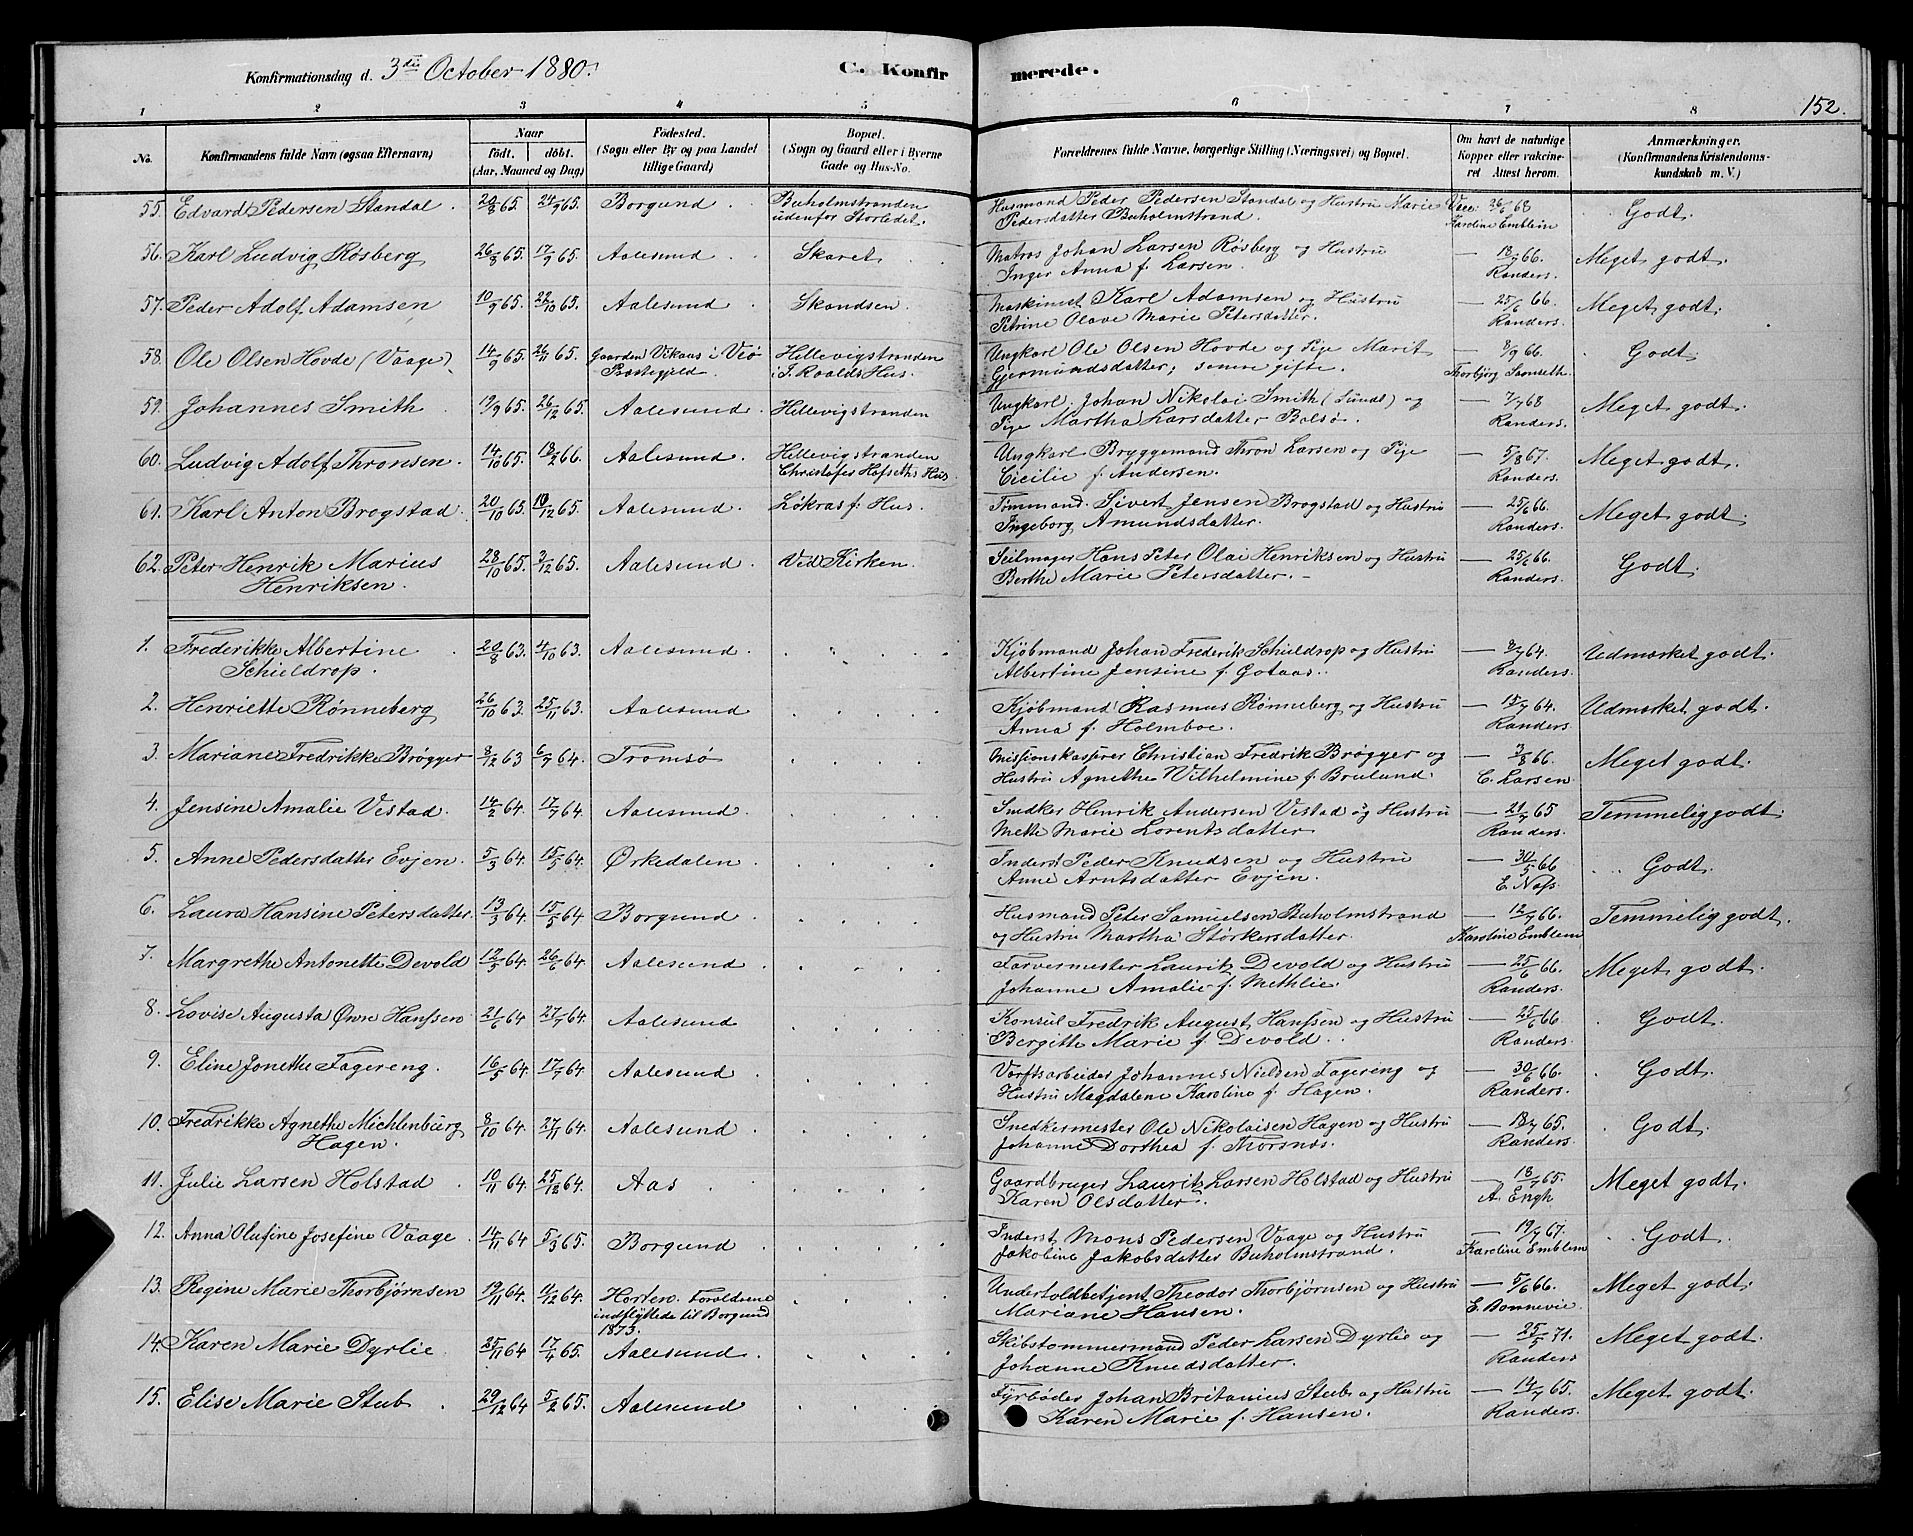 Konfirmationsdag d. 3die October 1880.
C. Konfirmerede.
152.
1 2 3 4 5 6 7 8
No.
Konfirmandens fulde Navn (ogsaa Efternavn)
Naar
født. døbt.
(Aar, Maaned og Dag)
Fødested.
(Sogn eller By og paa Landet
tillige Gaard)
Bopæl.
(Sogn og Gaard eller i Byerne
Gade og Hus-No.
Forældrenes fulde Navne, borgerlige Stilling (Næringsvei) og Bopæl.
Om havt de naturlige
Kopper eller vakcine-
ret Attest herom.
Anmærkninger.
(Konfirmandens Kristendoms-
kundskab m. V.)
55. Edvard Pedersen Standal. 20/8 65. 24/9 65. Borgund Buholmstranden Husmand Peder Pedersen Standal og Hustru Marie Vacc. 26/6 68 Godt.
udenfor Storledet. Pedersdatter Buholmstrand. Karoline Emblem
56. Karl Ludvig Røsberg 26/8 65. 17/9 65. Aalesund Skaret. Matros Johan Larsen Røsberg og Hustru — 13/7 66. Meget godt.
Inger Anna f. Larsen. Randers.
57. Peder Adolf Adamsen 10/9 65. 22/10 65. Aalesund Skandsen. Maskinist Karl Adamsen og Hustru — 25/6 66. Meget godt.
Petrine Olave Marie Petersdatter. Randers.
58. Ole Olsen Hovde (Vaage). 14/9 65. 26/11 65. Gaarden Vikaas i Veø Hellevigstranden Ungkarl Ole Olsen Hovde og Pige Marit — 8/9 66. Godt.
Præstegjeld. i J. Roalds Hus. Gjermundsdatter; senere gifte. Thorbjørg
59. Johannes Smith 19/9 65. 26/12 65. Aalesund. Hellevigstranden Ungkarl Johan Nikolai Smith (Sund) og — 7/7 68 Meget godt.
Pige Martha Larsdatter Bolsø. Randers.
60. Ludvig Adolf Thronsen. 14/10 65. 18/2 66. Aalesund. Hellevigstranden Ungkarl Bryggemand Thron Larsen og Pige — 5/8 67. Meget godt.
Christofer Hofseths Hus. Cicilie f. Andersen. Randers.
61. Karl Anton Brogstad. 20/10 65. 10/12 65. Aalesund. Løkras f. Hus. Tømmand. Sivert Jensen Brogstad og Hustru — 25/6 66. Meget godt.
Ingeborg Amundsdatter. Randers.
62. Peter Henrik Marius 28/10 65. 3/12 65. Aalesund. Ved Kirken. Seilmager Hans Peter Olai Henriksen og Hustru — 25/6 66. Godt.
Henriksen. Berthe Marie Petersdatter. Randers.
1. Frederikke Albertine 20/8 63. 4/10 63. Aalesund Kjøbmand Johan Frederik Schieldrop og Hustru — 8/7 64. Udmærket godt.
Schieldrop. Albertine Jensine f. Gotaas. Randers.
2. Henriette Rønneberg 26/10 63. 25/11 63. Aalesund Kjøbmand Rasmus Rønneberg og Hustru — 15/7 64. Udmærket godt.
Anna f. Holmboe. Randers.
3. Mariane Fredrikke Brøgger 8/12 63 6/7 64. Tromsø Missionskasserer Christian Fredrik Brøgger og — 3/8 66. Meget godt.
Hustru Agnethe Wilhelmine f. Bruland. C. Larsen
4. Jensine Amalie Vestad. 14/2 64. 17/7 64. Aalesund Snedker Henrik Andersen Vestad og Hustru — 21/7 65 Temmelig godt.
Mette Marie Lorentsdatter Randers.
5. Anne Pedersdatter Evjen. 5/3 64. 15/5 64. Ørkedalen Inderst Peder Knudsen og Hustru — 30/5 66 Godt.
Anne Arntsdatter Evjen. E. Næss.
6. Laura Hansine Petersdatter. 13/3 64. 15/5 64. Borgund Husmand Peter Samuelsen Buholmstrand — 12/7 66. Temmelig godt.
og Hustru Martha Størkersdatter. Karoline Emblem
7. Margrethe Antonette Devold 12/5 64. 26/6 64. Aalesund Farvermester Lauritz Devold og Hustru — 25/6 66. Meget godt.
Johanne Amalie f. Methlie. Randers.
8. Lovise Augusta Øwre Hanssen 21/6 64 27/7 64. Aalesund Konsul Fredrik August Hanssen og Hustru — 25/6 66. Godt.
Bergitte Marie f. Devold. Randers.
9. Eline Jonethe Fagereng. 16/5 64. 17/7 64. Aalesund Værftsarbeider Johannes Nielsen Fagereng og — 30/6 66. Godt.
Hustru Magdalene Karoline f. Hagen. Randers.
10. Fredrikke Agnethe Michlenburg 8/10 64. 27/11 64. Aalesund Snedkermester Ole Nikolaisen Hagen og Hustru — 18/7 65. Godt.
Hagen. Johanne Dorthea f. Thorsnæs. Randers.
11. Julie Larsen Holstad 10/11 64. 25/12 64. Aas Gaardbruger Lauritz Larsen Holstad og Hustru — 18/7 65. Meget godt.
Karen Olsdatter. A. Engh.
12. Anna Olufine Josefine Vaage. 14/11 64 5/3 65. Borgund Inderst Mons Pedersen Vaage og Hustru — 19/7 67. Godt.
Jakobine Jakobsdatter Buholmstrand. Karoline Emblem
13. Regine Marie Thorbjørnsen 19/11 64. 4/12 64. Horten. Forældrene Undertoldbetjent Theodor Thorbjørnsen og Hustru — 5/6 66. Meget godt.
indflyttede til Borgund Mariane Hansen. E. Bonnevie.
1873.
14. Karen Marie Dyrlie 25/11 64 17/4 65. Aalesund Skibstømmermand Peder Larsen Dyrlie og — 25/5 71. Meget godt.
Johanne Knudsdatter. Randers
15. Elise Marie Stub 29/12 64 5/2 65. Aalesund Fyrbøder Johan Britanius Stub og Hustru — 14/7 65. Meget godt.
Karen Marie f. Hansen. Randers.